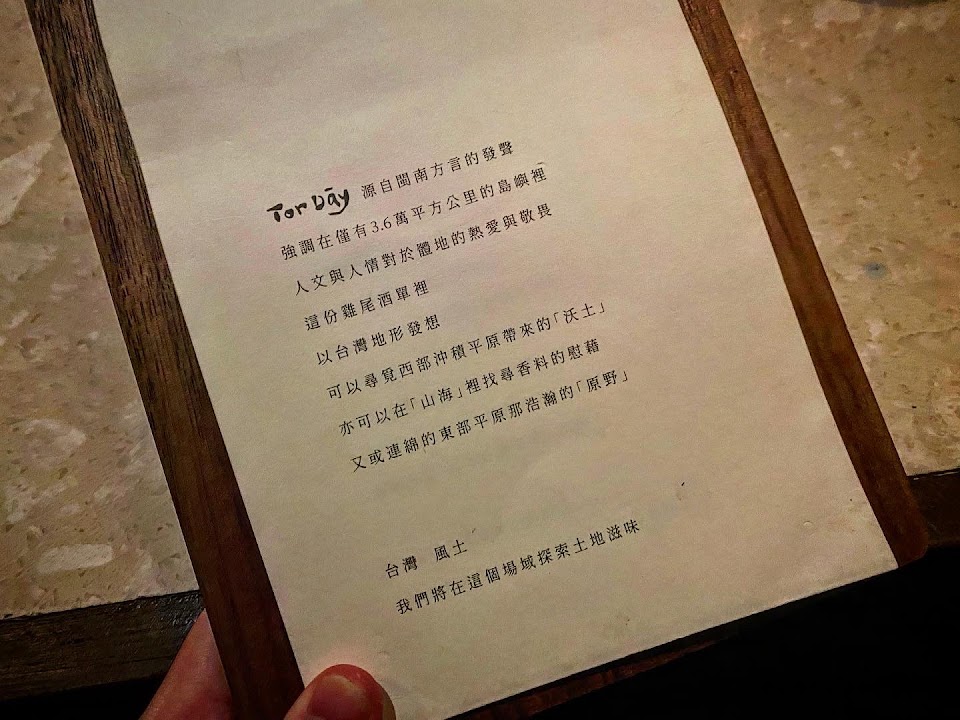 Tor Dāy 源自閩南方言的發聲
強調在僅有3.6萬平方公里的島嶼裡
人文與人情對於體地的熱愛與敬畏
這份雞尾酒單裡
以台灣地形發想
可以尋覓西部沖積平原帶來的「沃土」
亦可以在「山海」裡找尋香料的慰藉
又或連綿的東部平原那浩瀚的「原野」
台灣 風土
我們將在這個場域探索土地滋味